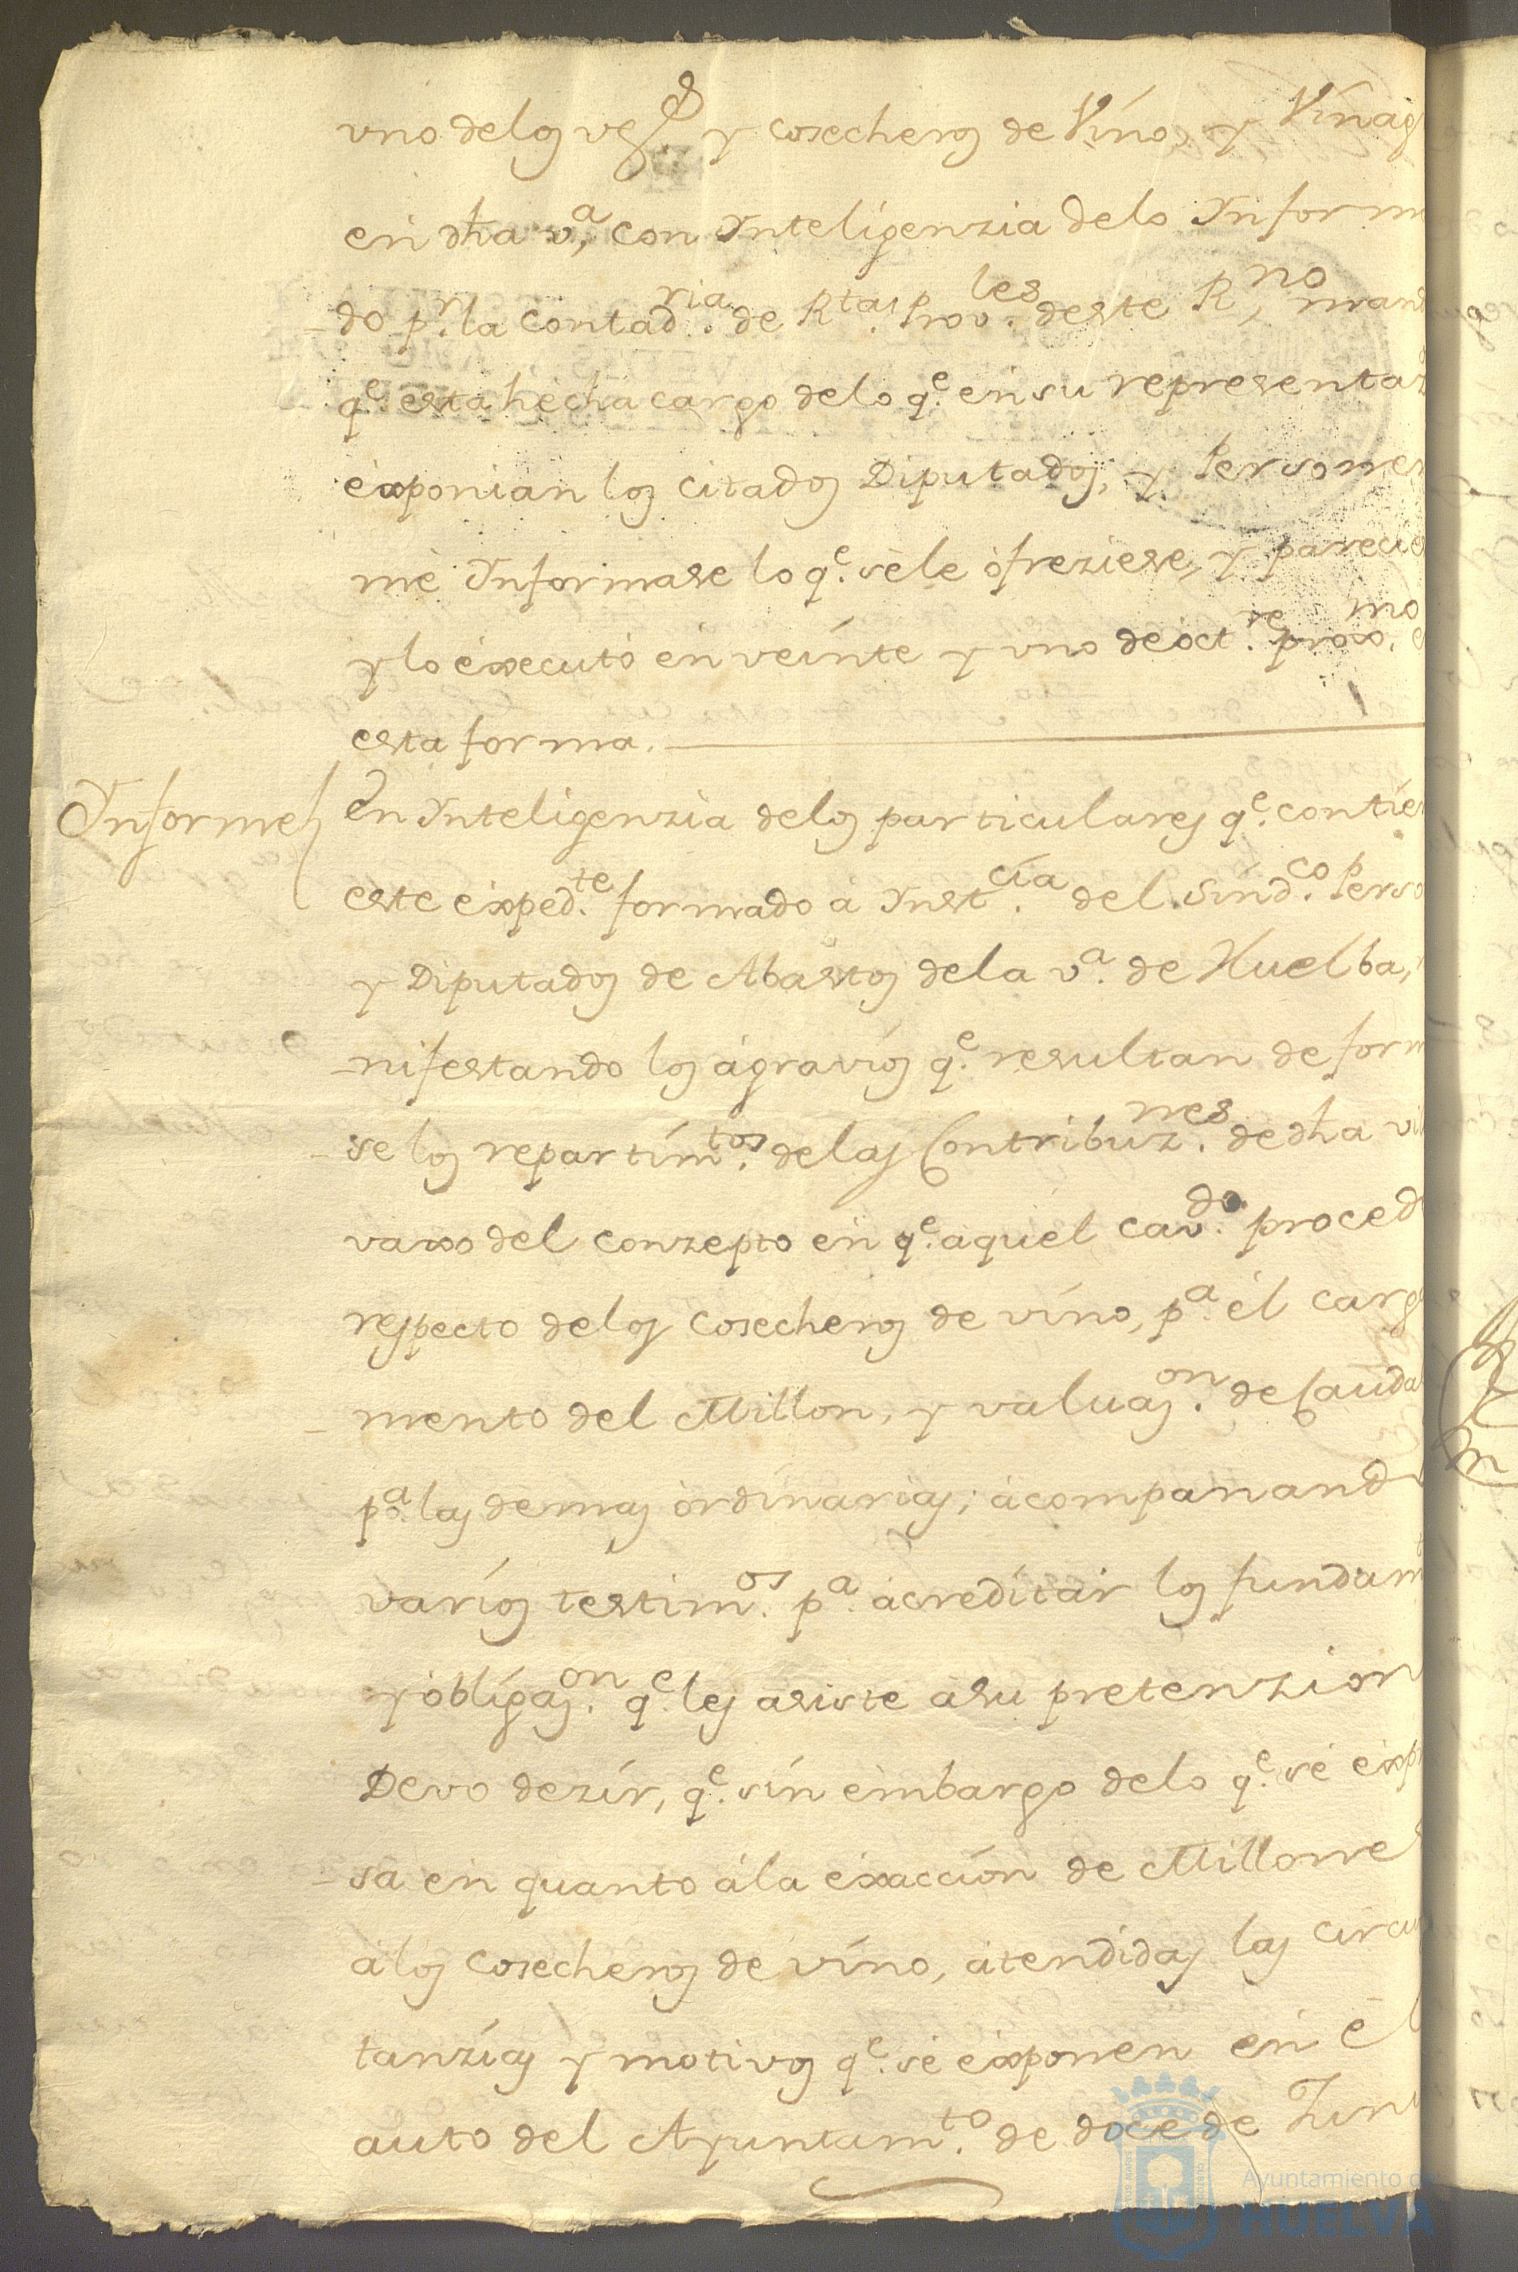 vno delos vez.s y cosecheros de Víno, y Vinag
en dha v.a, con Inteligenzia delo Inform
do p.r la contad.ria de R.tas Prov.les deste R.no, mand
q.e esta hecha cargo delo q.e en su representaz
exponian los citados Diputados, y Persone
me Informase lo q.e sele ofreziese, y parecie
y lo executó en veínte y vno de oct.re proxo.mo e
esta forma.
Informe
En Inteligenzia delos particulares q.e contie
este exped.te formado a Inst.cia del Sínd.co Perso
y Diputados de Abastos dela v.a de Huelba,
nifestando los agravíos q.e resultan de form
se los repartím.tos delas Contribuz.nes de dha vi
vaxo del conzepto en q.e aquel cav.do proced
respecto delos cosecheros de víno, p.a el carg
mento del Millon, y valuaz.on de Cauda
p.a las demas ordínarias; acompanand
varíos testim.os p.a acredítar los fundam
y oblígaz.on q.e les asiste asu pretenzion
Devo dezír, q.e sín embargo delo q.e se exp
sa en quanto ála exaccíon de Millone
á los cosecheros de víno, atendidas las circu
tanzías y motivos q.e se exponen en el
auto del Ayuntam.to de doce de Jun
Ayuntamiento de
HUELVA